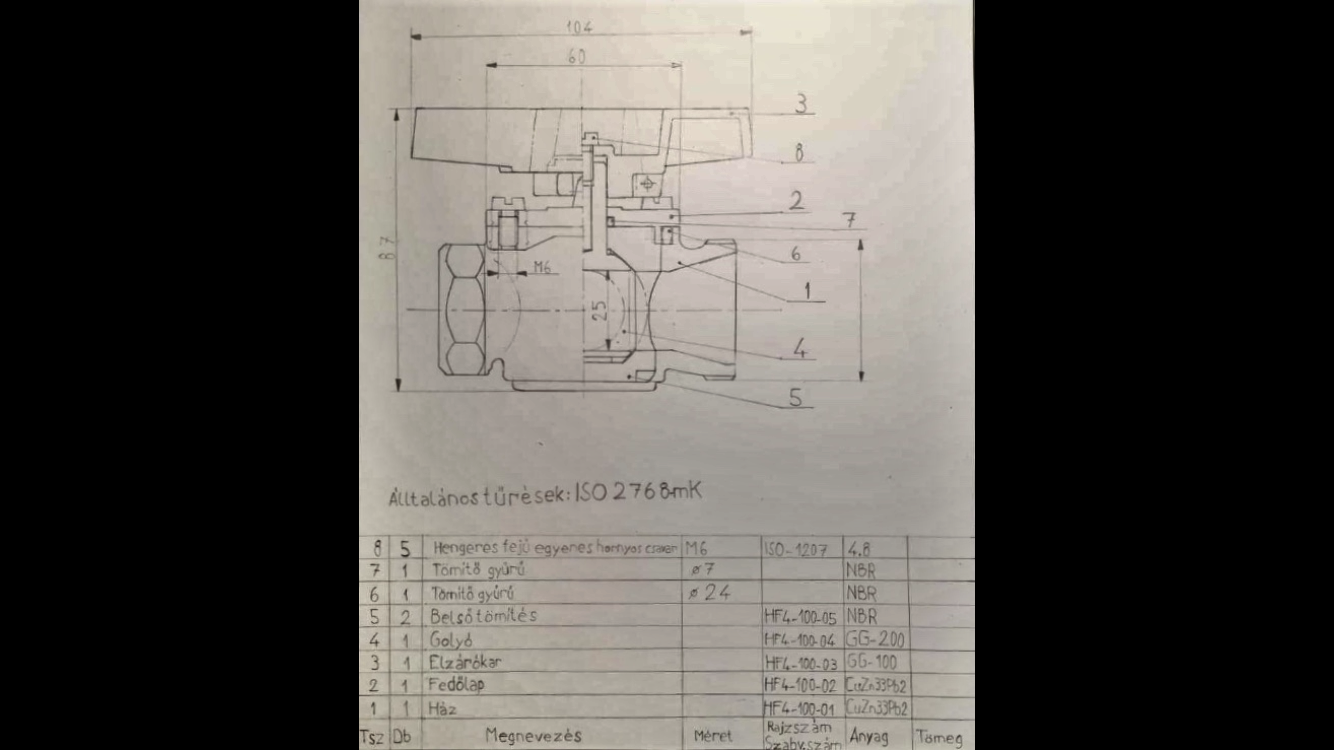 104
60
3
8
2
7
87
6
M6
1
25
4
5
Álltalános tűrések: ISO 2768mK
8 5 Hengeres fejű egyenes hornyos csavar M6 ISO-1207 4.8
7 1 Tömítő gyűrű ø7 NBR
6 1 Tömítő gyűrű ø24 NBR
5 2 Belső tömítés HF4-100-05 NBR
4 1 Golyó HF4-100-04 GG-200
3 1 Elzárókar HF4-100-03 GG-100
2 1 Fedőlap HF4-100-02 CuZn33Pb2
1 1 Ház HF4-100-01 CuZn33Pb2
Tsz Db Megnevezés Méret Rajzszám Szabv.szám Anyag Tömeg